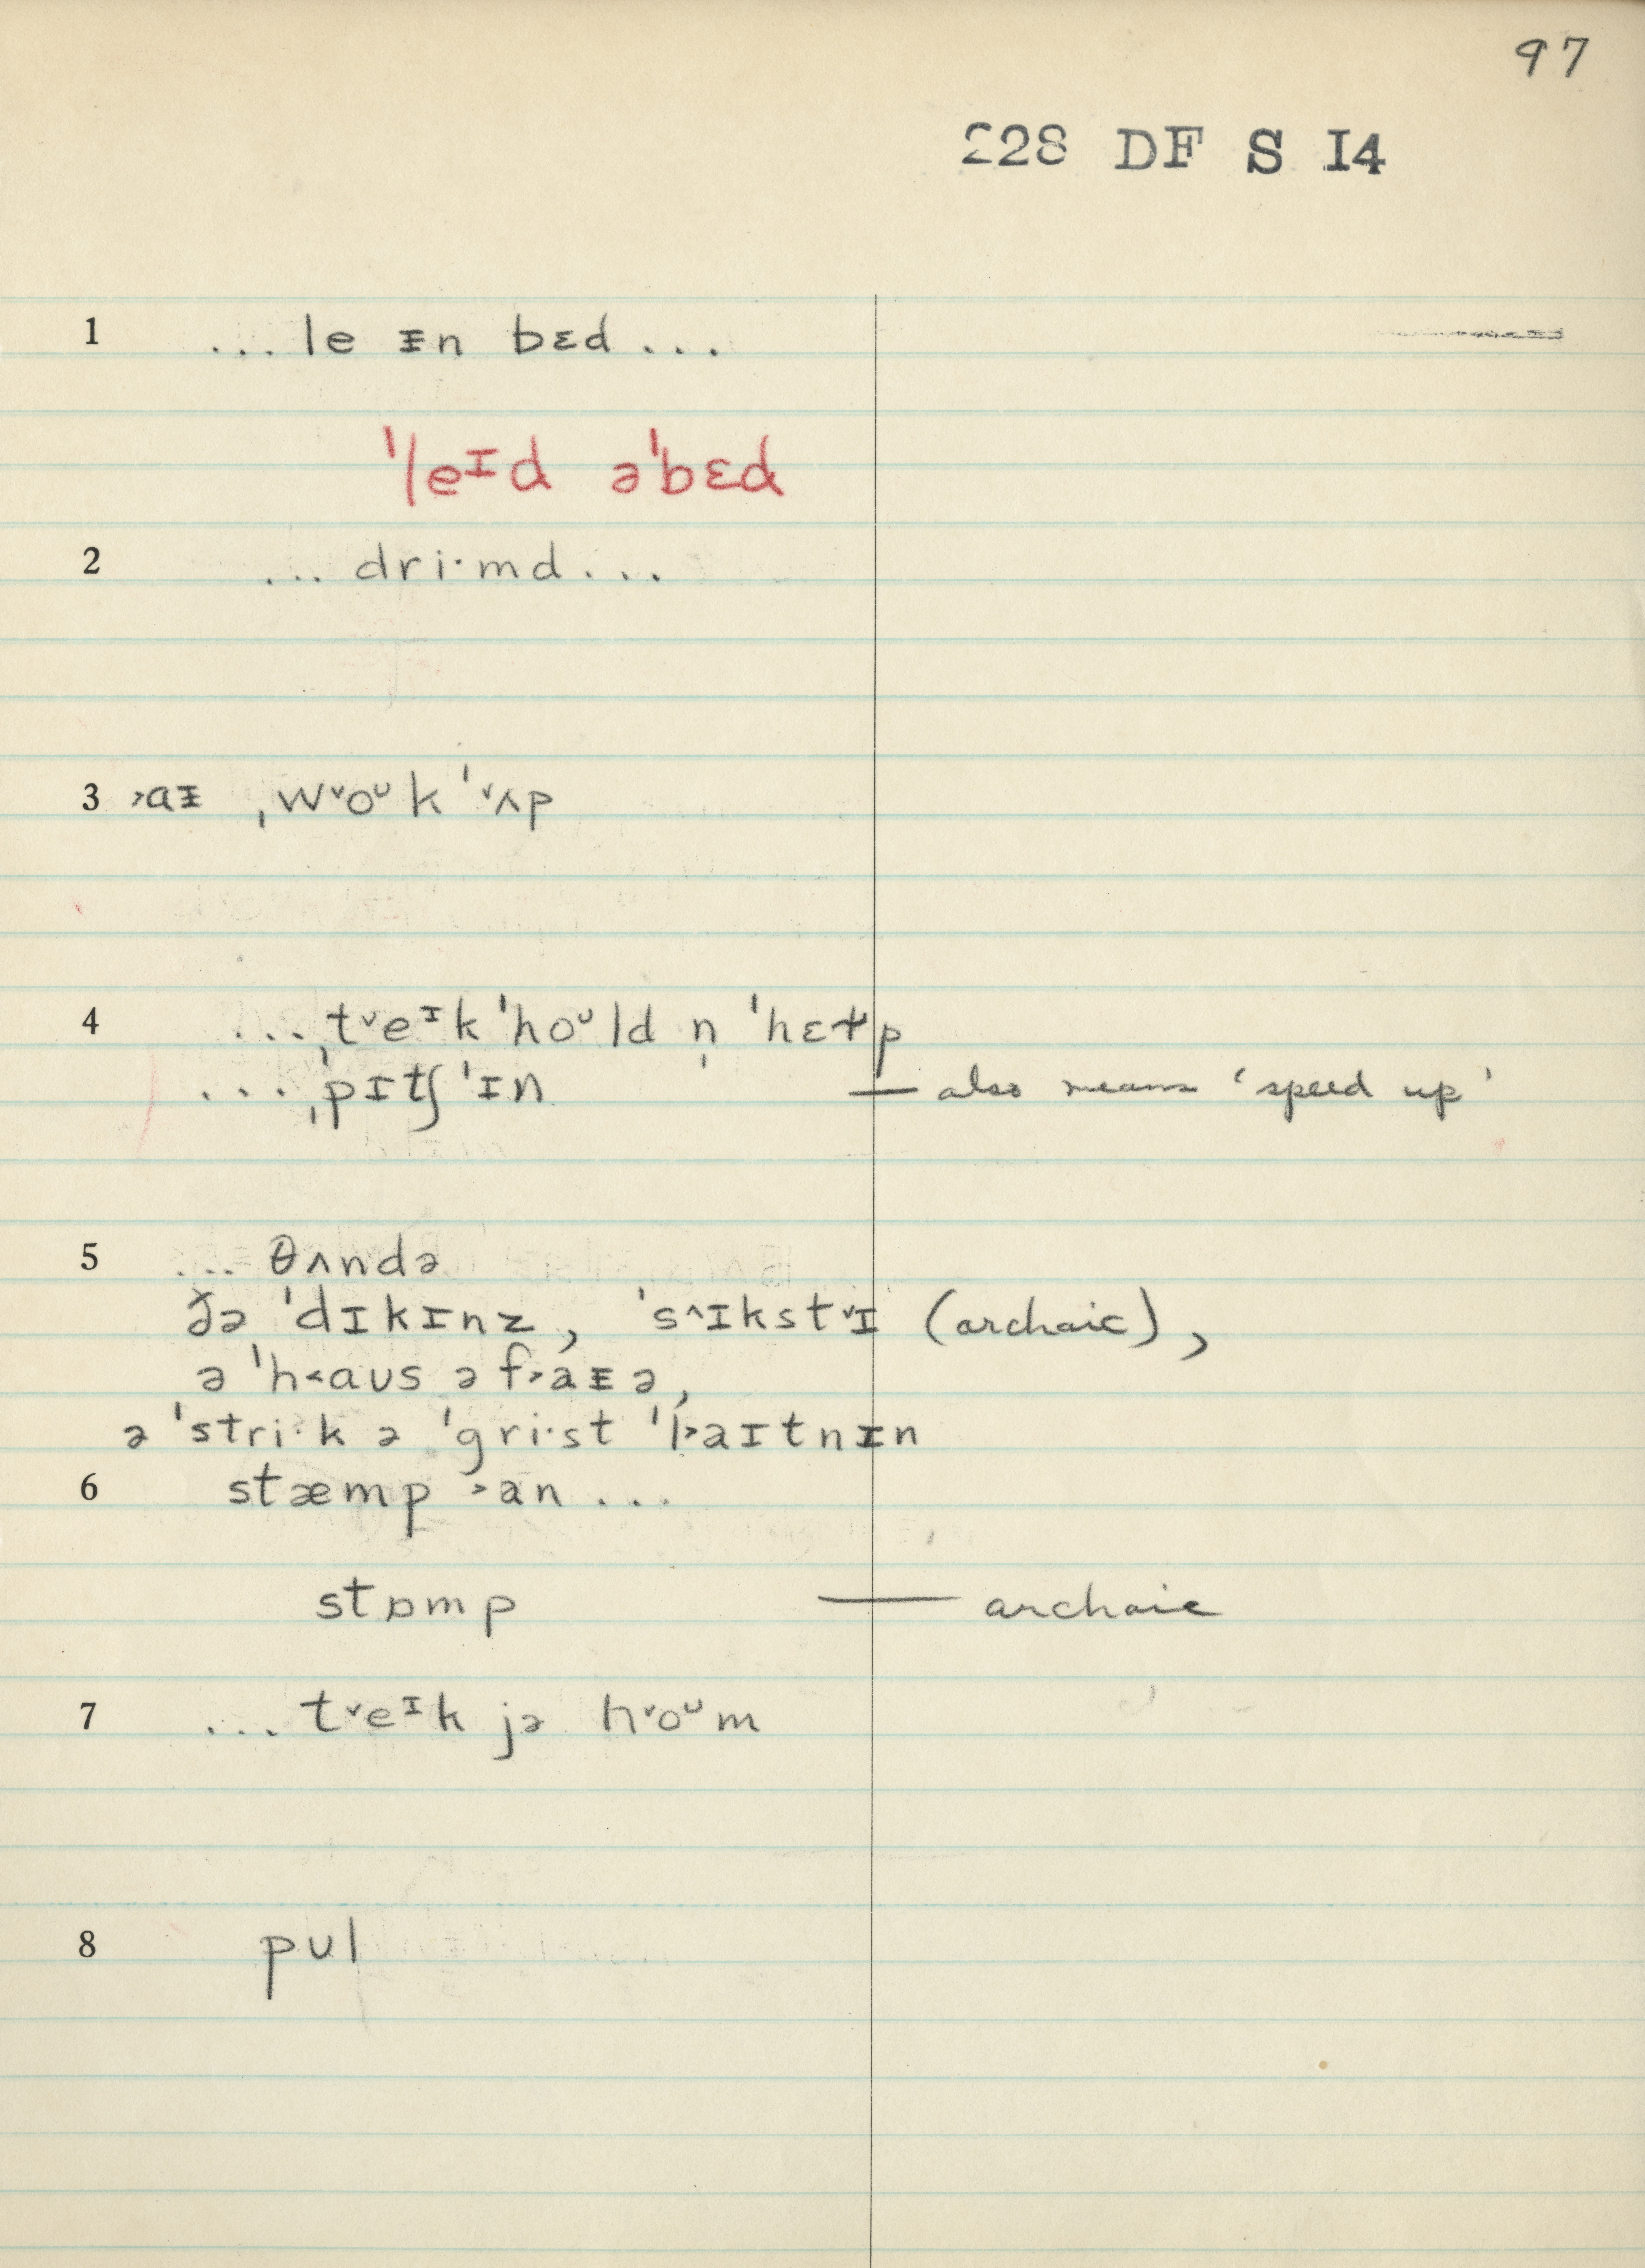 97
228 DF S I4
1 ... le ᵻn bɛd ...
ˈleᴵd əˈbɛd
2 ... dri·md ...
3 ˃aᵻ ˌw˅oᶷk ˈ˅ʌp
4 ... ˌt˅eᴵk ˈhoᶷld n̩ ˈhɛɫp
... ˌpɪtʃ ˈɪn — also means ‘speed up’
5 ... θʌndə
ðə ˈdɪkɪnz, ˈs˄ɪkst˅ɪ (archaic),
ə ˈh˂aʊs ə f˃aᵻə,
ə ˈstri·k ə ˈgri·st ˈl˃aɪtnᵻn
6 stæmp ˃an ...
stɒmp — archaic
7 ... t˅eᴵk jə h˅oᶷm
8 pʊl